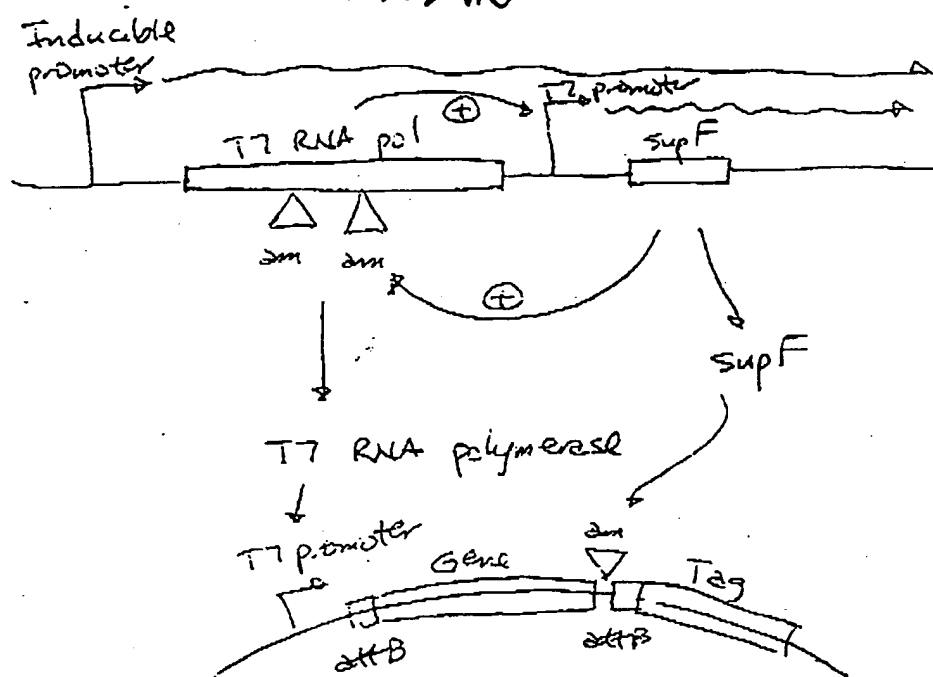 Inducible
promoter
T7 promoter
T7 RNA pol
+
supF
am am
+
supF
T7 RNA polymerase
T7 promoter
Gene
am
Tag
attB
attB